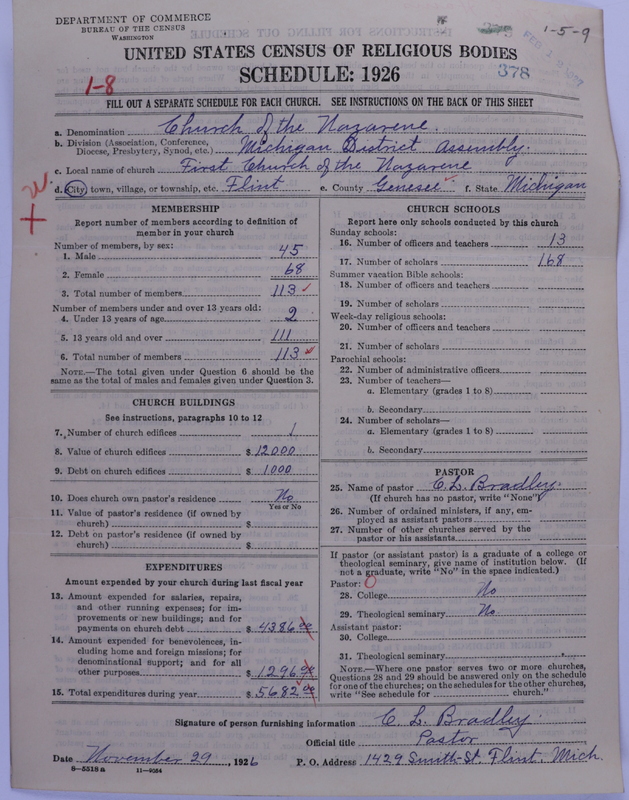 DEPARTMENT OF COMMERCE
BUREAU OF THE CENSUS
WASHINGTON
1-5-9
378
UNITED STATES CENSUS OF RELIGIOUS BODIES
SCHEDULE: 1926
1-8
FILL OUT A SEPARATE SCHEDULE FOR EACH CHURCH. SEE INSTRUCTIONS ON THE BACK OF THIS SHEET
a. Denomination Church of the Nazarene.
b. Division (Association, Conference, Diocese, Presbytery, Synod, etc.) Michigan District Assembly.
c. Local name of church First Church of the Nazarene
d. City, town, village, or township, etc. Flint e. County Genesee f. State Michigan
MEMBERSHIP
Report number of members according to definition of member in your church
Number of members, by sex:
1. Male 45
2. Female 68
3. Total number of members 113
Number of members under and over 13 years old:
4. Under 13 years of age 2
5. 13 years old and over 111
6. Total number of members 113
NOTE.—The total given under Question 6 should be the
same as the total of males and females given under Question 3.
CHURCH BUILDINGS
See instructions, paragraphs 10 to 12
7. Number of church edifices 1
8. Value of church edifices $ 12000
9. Debt on church edifices $ 1000
10. Does church own pastor's residence No
Yes or No
11. Value of pastor's residence (if owned by
church) $
12. Debt on pastor's residence (if owned by
church) $
EXPENDITURES
Amount expended by your church during last fiscal year
13. Amount expended for salaries, repairs,
and other running expenses; for im-
provements or new buildings; and for
payments on church debt $ 4386.00
14. Amount expended for benevolences, in-
cluding home and foreign missions; for
denominational support; and for all
other purposes $ 1296.00
15. Total expenditures during year $ 5682.00
CHURCH SCHOOLS
Report here only schools conducted by this church
Sunday schools:
16. Number of officers and teachers 13
17. Number of scholars 168
Summer vacation Bible schools:
18. Number of officers and teachers
19. Number of scholars
Week-day religious schools:
20. Number of officers and teachers
21. Number of scholars
Parochial schools:
22. Number of administrative officers
23. Number of teachers—
a. Elementary (grades 1 to 8)
b. Secondary
24. Number of scholars—
a. Elementary (grades 1 to 8)
b. Secondary
PASTOR
25. Name of pastor C. L. Bradley.
(If church has no pastor, write "None")
26. Number of ordained ministers, if any, em-
ployed as assistant pastors
27. Number of other churches served by the
pastor or his assistants
If pastor (or assistant pastor) is a graduate of a college or
theological seminary, give name of institution below. (If
not a graduate, write "No" in the space indicated.)
Pastor: 0
28. College No
29. Theological seminary No
Assistant pastor:
30. College
31. Theological seminary
NOTE.—Where one pastor serves two or more churches,
Questions 28 and 29 should be answered only on the schedule
for one of the churches; on the schedules for the other churches,
write "See schedule for church."
Signature of person furnishing information C. L. Bradley.
Official title Pastor
Date November 29, 1926 P. O. Address 1429 Smith-St. Flint, Mich.
8-5518a 11-9034